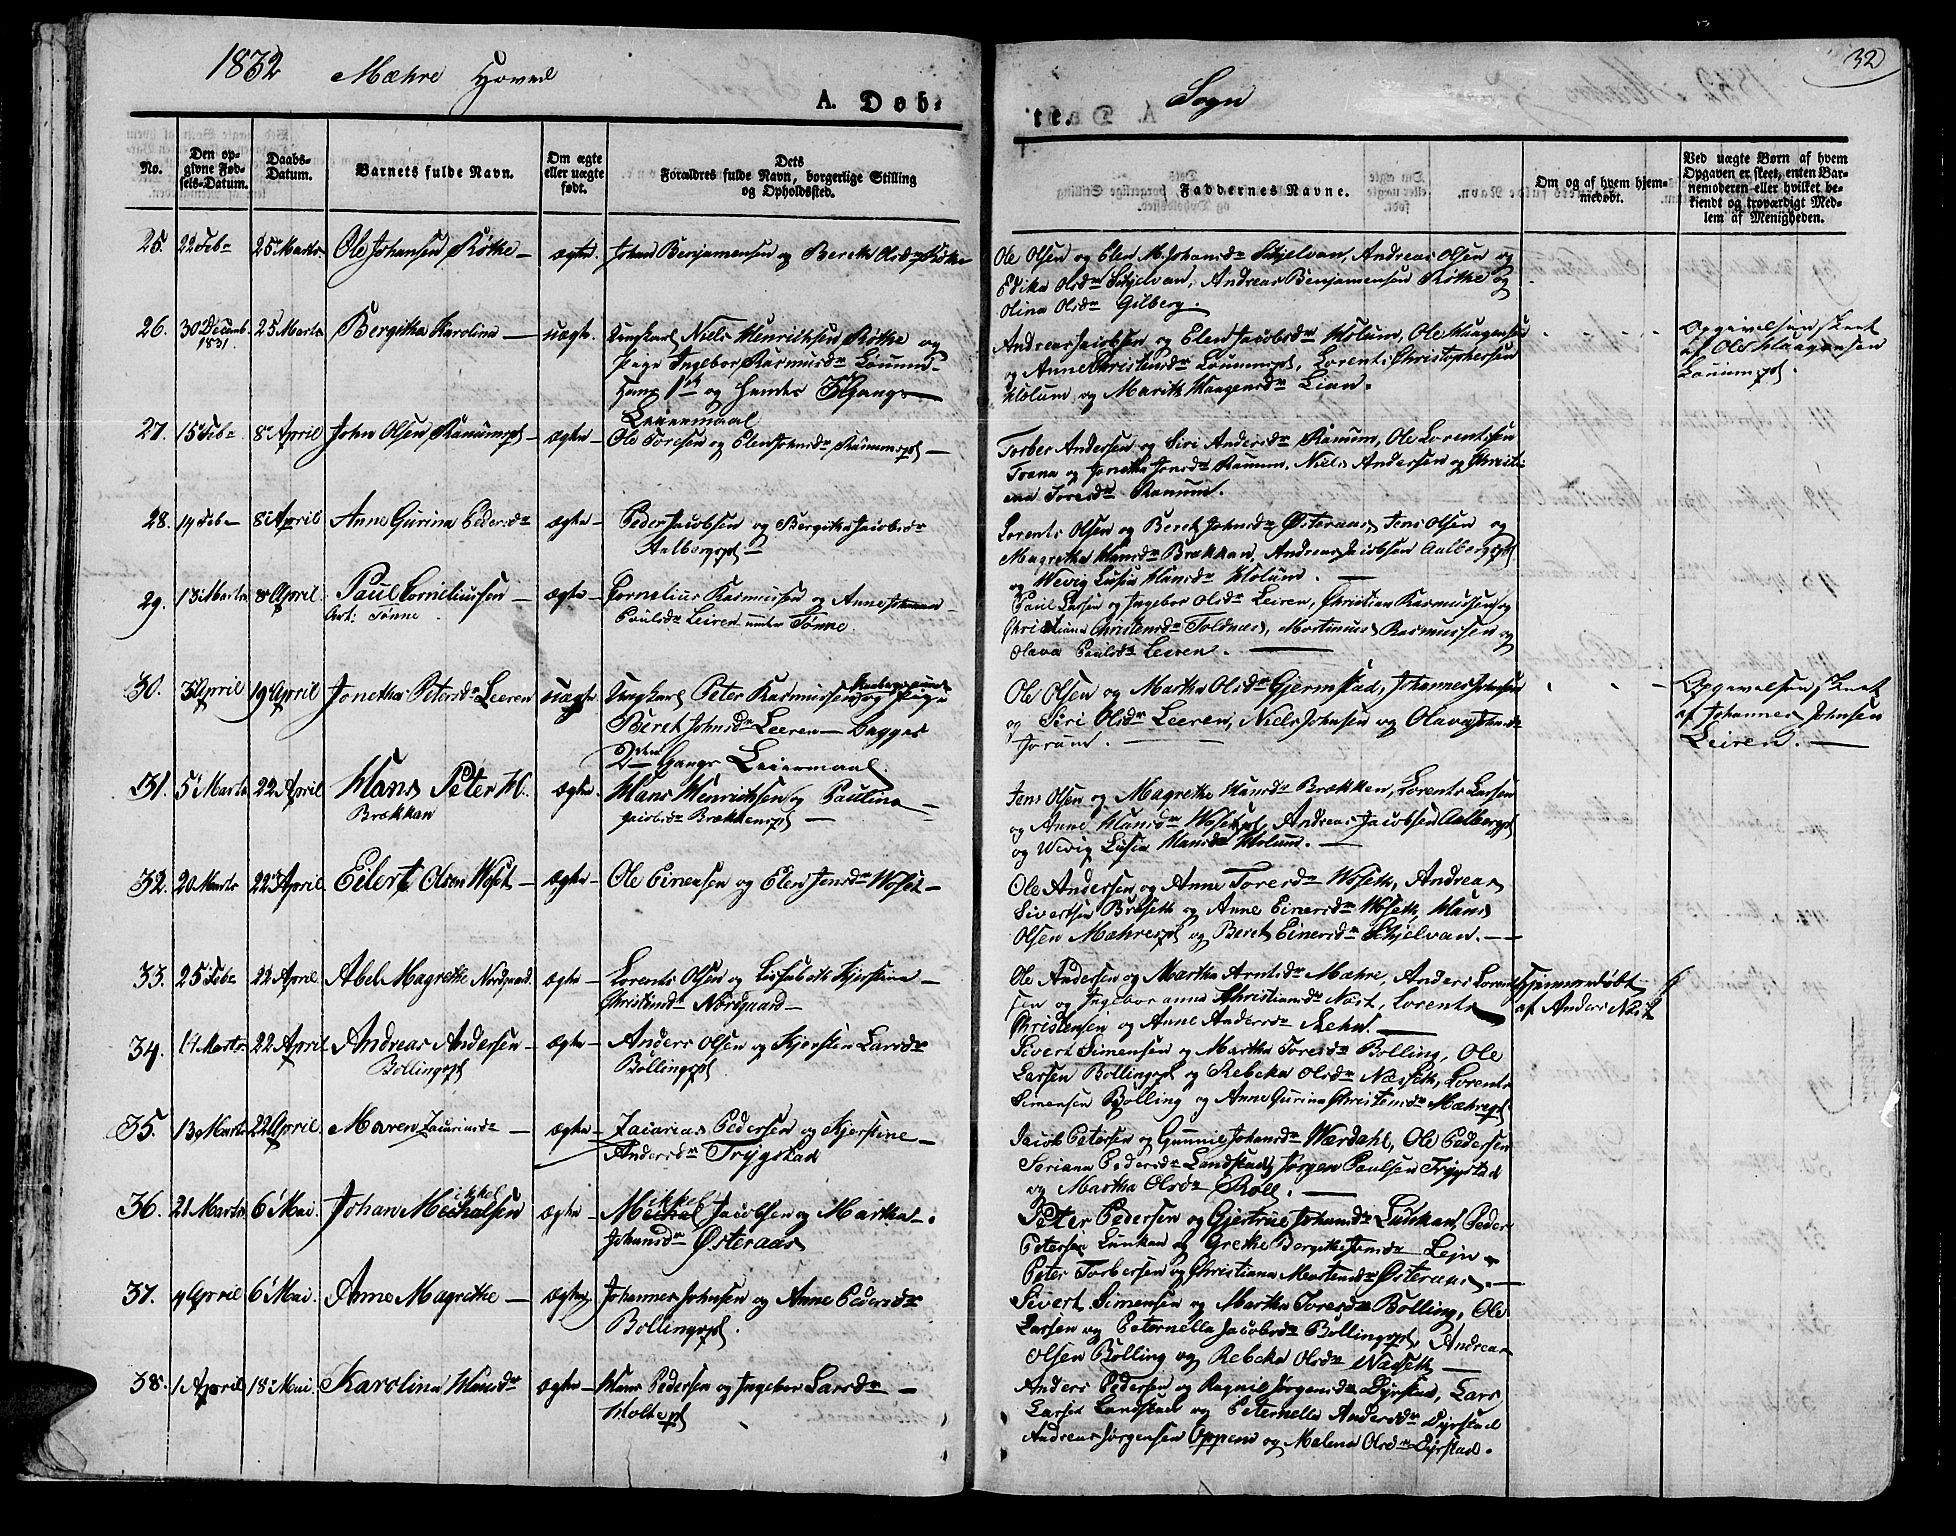 1832 Mæhre Hoved Sogn 32
A. Døbte.
No.
Den opgivne Fødsels-Datum.
Daabs-Datum.
Barnets fulde Navn.
Om ægte eller uægte født.
Dets Forældres fulde Navn, borgerlige Stilling og Opholdssted.
Faddernes Navne.
Om og af hvem hjemmedøbt.
Ved uægte Børn af hvem Opgaven er skeet, enten Barnemoderen eller hvilket bekiendt og troværdigt Medlem af Menigheden.
25. 22 Feb 25 Marts Ole Johansen Røthe ægte. Johan Benjamensen og Bereth Olsdr Røthe
Ole Olsen og Elen M. Johansdr Schjelvan, Andreas Olsen og
Edika Olsdr Schjelvan, Andreas Benjamensen Røthe og
Olina Olsdr Gilberg.
26. 30 Decemb. 1831. 25 Marts Bergitha Karolina uægte. Ungkarl Niels Henrichsen Røthe og
Pige Ingebor Rasmusdr
Hans 1ste og Hendes Gangs
Leiermaal
Andreas Jacobsen og Elen Jacobsdr Holum, Ole Haagensen
og Anne Christensdr Lorents Christophersen
Holum og Marith Haagensdr Lian.
Opgivelsen skeet
af Ole Haagensen
27. 15 Feb 8 April John Olsen Ranumspl ægte Ole Toresen og Elen Johnsdr Ranumspl
Torber Andersen og Siri Andersdr Ranum, Ole Lorentsen
Trana og Jonetha Jonsdr Ranum, Niels Andersen og Christi
ana Toresdr Ranum.
28. 14 Feb 8 April Anne Gurina Pedersdr ægte Peder Jacobsen og Bergitha Jacobsdr
Aalbergspl
Lorents Olsen og Beret Johnsdr Østeraas, Jens Olsen og
Magretha Hansdr Brækkan, Andreas Jacobsen Aalbergspl
og Wevig Lusia Hansdr Holum.
29. 13 Marts 8 April Paul Corneliussen ægte Cornelius Rasmussen og Anne Johanna
Paulsdr Leiren under Tønne.
Paul Larsen og Ingebor Olsdr Leiren, Christian Rasmussen og
Christiana Christensdr Toldnæs, Mortinus Rasmussen og
Olava Paulsdr Leiren.
30. 3 April 19 April Jonetha Petersdr Leeren uægte Ungkarl Peter Rasmussen og Pige
Beret Johnsdr Leeren Begges
2den Gangs Leiermaal.
Ole Olsen og Martha Olsdr Gjermstad, Johannes Johnsen
og Siri Olsdr Leeren, Niels Johnsen og Olava Johnsdr
Jorum.
Opgivelsen skeet
af Johannes Johnsen
Leiren.
31. 5 Marts 22 April Hans Peter H.
Brækkan ægte. Hans Henrichsen og Paulina
Jacobsdr Brækkenspl
Jens Olsen og Magrethe Hansdr Brækken, Lorents Larsen
og Anne Hansdr Wosetspl, Andreas Jacobsen Aalbergspl
og Wevig Lusia Hansdr Holum.
32. 20 Marts 22 April Eilert Olsen Woset ægte Ole Einersen og Elen Jensdr Woset
Ole Andersen og Anne Toresdr Woseth, Andreas
Sivertsen Braseth og Anne Einersdr Woseth, Hans
Olsen Mæhrespl og Beret Einersdr Schjelvan.
33. 25 Feb 22 April Abel Magrethe Nordgaard ægte Lorents Olsen og Lisabeth Kjerstine
Christensdr Nordgaard
Ole Andersen og Martha Arntsdr Mæhre, Anders Lorent
sen og Ingebor anna Christiansdr Næst, Lorents
Christensen og Anne Andersdr Rehn.
Hjemmedøbt
af Anders Næst
34. 14 Marts 22 April Andreas Andersen
Bollingspl ægte Anders Olsen og Kjersten Larsdr
Bollingspl
Sivert Simensen og Martha Toresdr Bolling, Ole
Larsen Bollingspl og Rebeka Olsdr Næsseth, Lorents
Simensen Bolling og Anne Gurina Christensdr Mæhrespl
35. 13 Marts 22 April Maren Zacariasdr ægte Zacarias Pedersen og Kjerstine
Andersdr Trygstad
Jacob Petersen og Gunnie Johansdr Wærdahl, Ole Pedersen
Seriana Pedersdr Landstad, Jørgen Paulsen Trygstad
og Martha Olsdr Røll.
36. 21 Marts 6 Mai Johan Mickelsen ægte Mickel Jacobsen og Martha
Johansdr Østeraas
Peter Pedersen og Gjertrue Johansdr Lunkan, Peder
Petersen Lunkan og Grethe Bergithe Jensdr Lein
Peter Torbersen og Christiana Mortensdr Østeraas.
37. 9 April 6 Mai. Anne Magrethe ægte Johannes Johnsen og Anne Pedersdr
Bollingspl.
Sivert Simensen og Martha Toresdr Bolling, Ole
Larsen og Peternella Jacobsdr Bollingspl, Andreas
Olsen Bolling og Rebeka Olsdr Næsseth
38. 1 April 18 Mai Karolina Hansdr ægte Hans Pedersen og Ingebor Larsdr
Holtespl
Anders Pedersen og Ragnil Jørgensdr Dyrstad, Lars
Larsen Landstad og Peternella Andersdr Dyrstad
Andreas Jørgensen Oppem og Malena Olsdr Dyrstad.